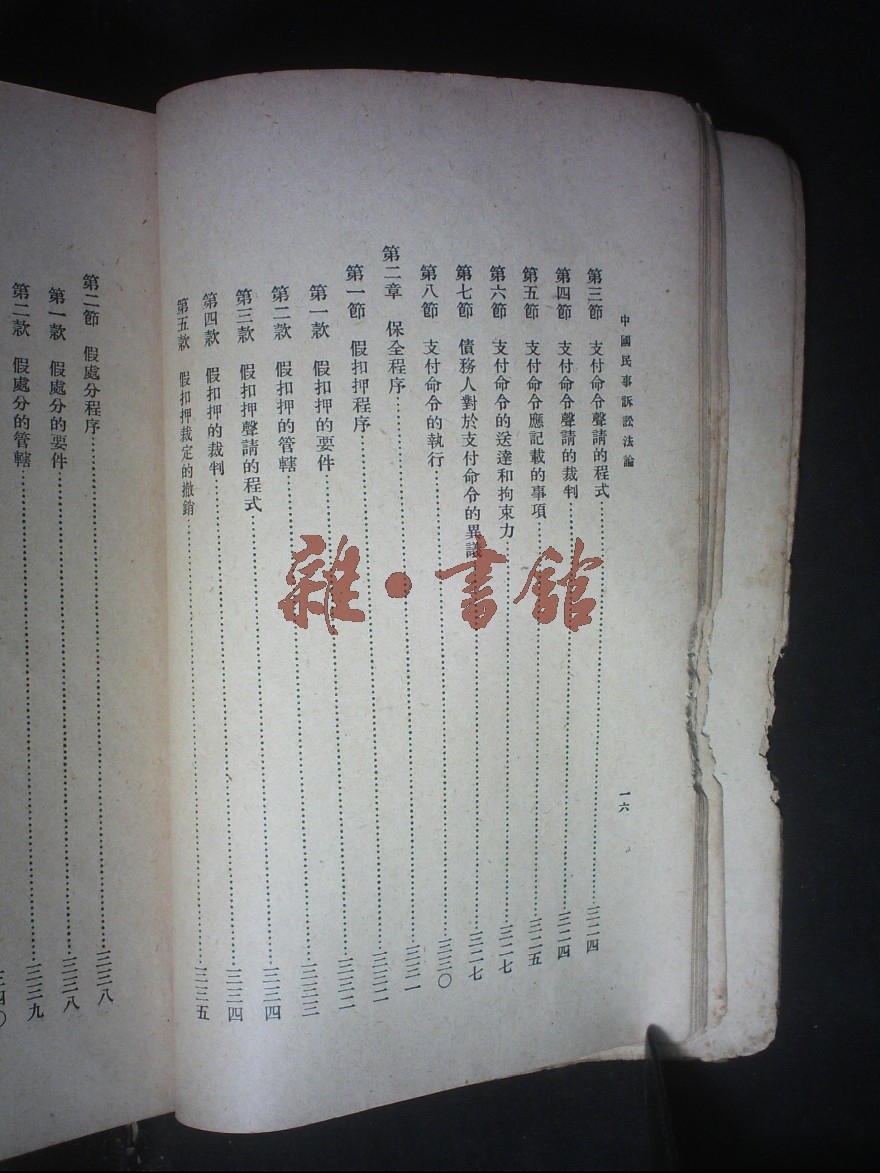 中國民事訴訟法論
一六
第三節 支付命令聲請的程式……三二四
第四節 支付命令聲請的裁判……三二四
第五節 支付命令應記載的事項……三二五
第六節 支付命令的送達和拘束力……三二七
第七節 債務人對於支付命令的異議……三二七
第八節 支付命令的執行……三三〇
第二章 保全程序……三三一
第一節 假扣押程序……三三二
第一款 假扣押的要件……三三二
第二款 假扣押的管轄……三三三
第三款 假扣押聲請的程式……三三四
第四款 假扣押的裁判……三三四
第五款 假扣押裁定的撤銷……三三五
第二節 假處分程序……三三八
第一款 假處分的要件……三三八
第二款 假處分的管轄……三三九
三四〇
雜·書館